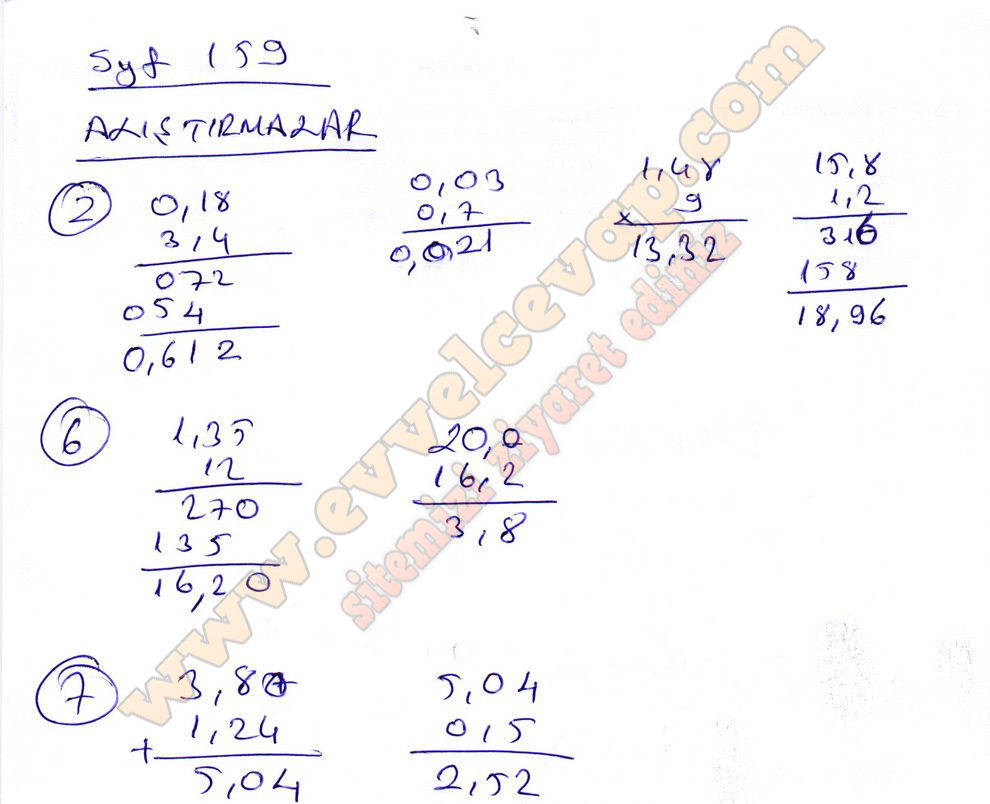 Syf 159
ALIŞTIRMALAR
2
0,18
3,4
072
054
0,612
0,03
0,7
0,021
1,48
x 9
13,32
15,8
1,2
316
158
18,96
6
1,35
12
270
135
16,20
20,0
16,2
3,8
7
3,80
+ 1,24
5,04
5,04
0,5
2,52
www.evvelcevap.com
sitemizi ziyaret ediniz